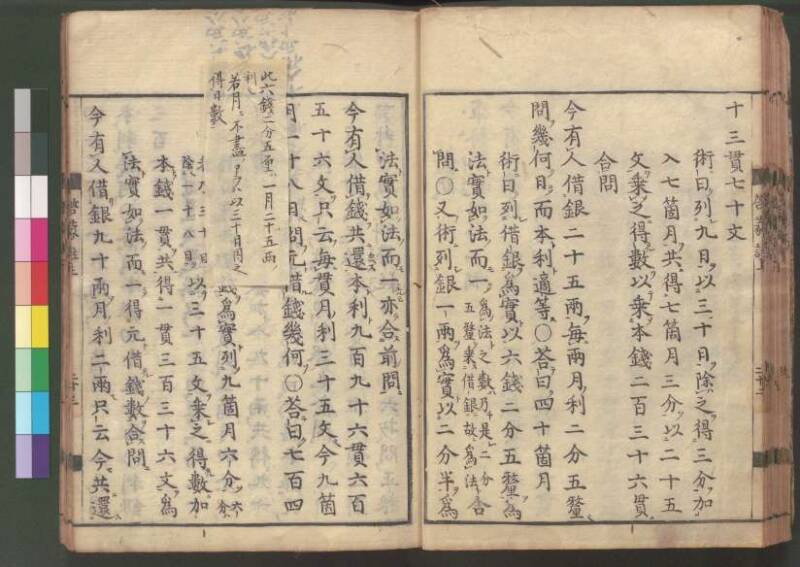 十三貫七十文
術曰列九日以三十日除之得三分加
入七箇月共得七箇月三分以二十五
文乘之得數以乘本錢二百三十六貫
合問
今有人借銀二十五兩每兩月利二分五釐
問幾何日而本利適等〇荅曰四十箇月
術曰列借銀爲實以六錢二分五釐爲
法實如法而一爲法之數乃是二分
五釐乘借銀故爲法合
問〇又術列銀一兩爲實以二分半爲
法實如法而一亦合前問
今有人借錢共還本利九百九十六貫六百
五十六文只云每貫月利三十五文今九箇
月二十八日問元借錢幾何〇荅曰七百四
此六錢二分五釐一月二十五兩
利
若月不盡者以三十日約之
得日數
錢爲實列九箇月六分
以三十五文乘之得數加
本錢一貫共得一貫三百三十六文爲
法實如法而一得元借錢數合問
今有人借銀九十兩月利二兩只云今共還